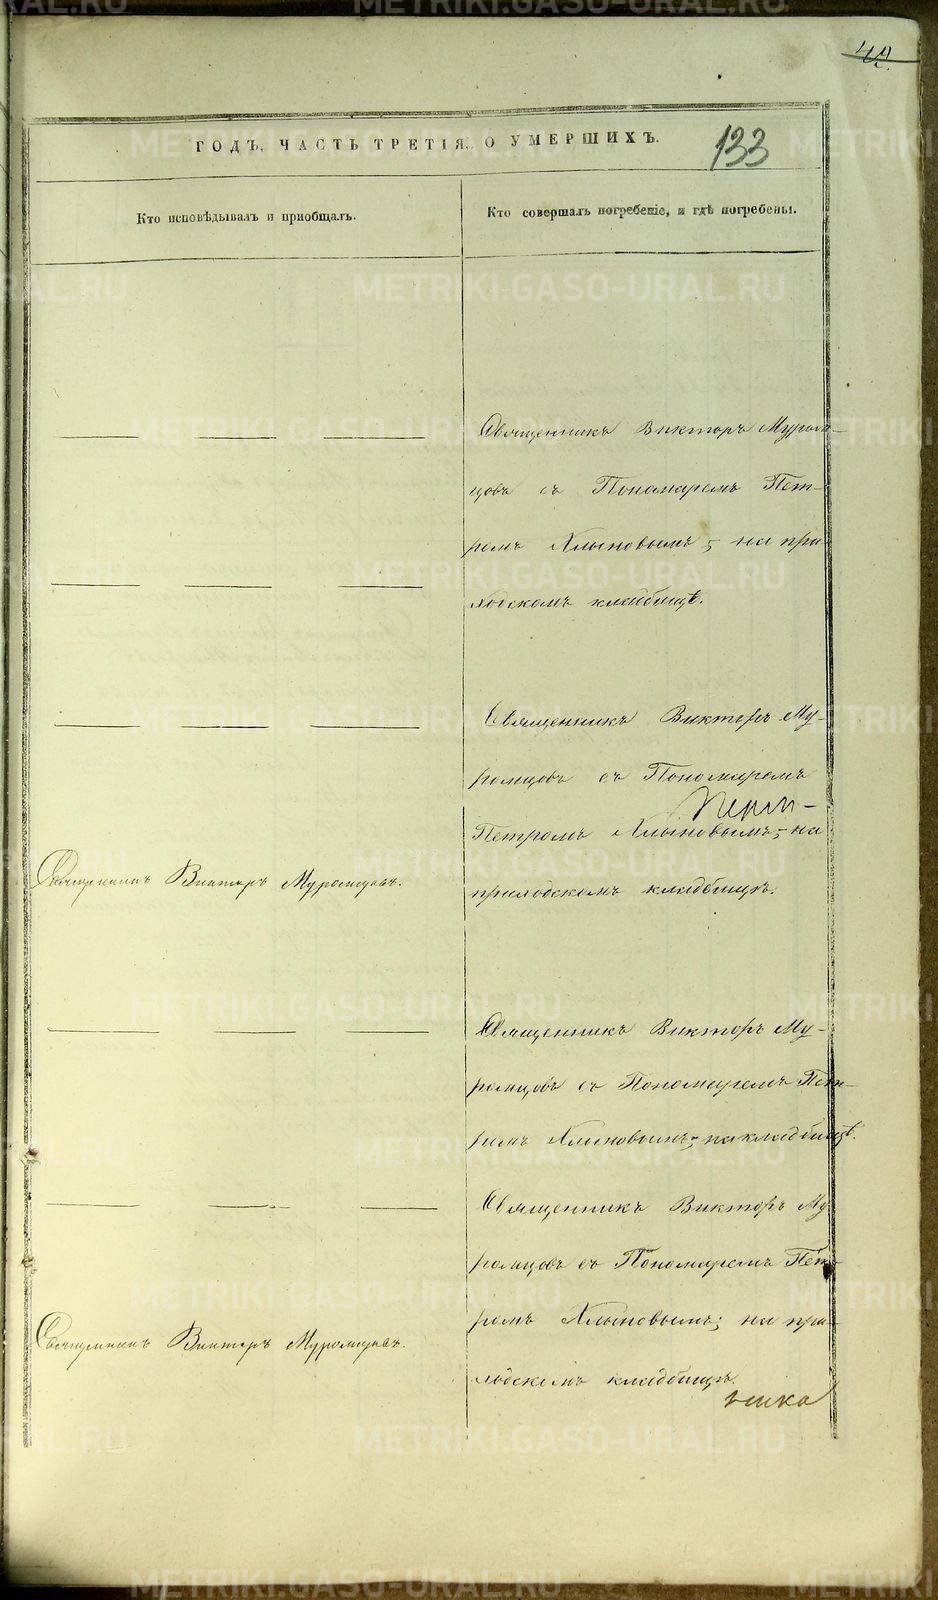 133
ГОДЪ, ЧАСТЬ ТРЕТІЯ, О УМЕРШИХЪ.
Кто исповѣдывалъ и пріобщалъ.
Кто совершалъ погребеніе, и гдѣ погребены.
Священникъ Викторъ Муром-
цовъ съ Пономаремъ Пет-
ромъ Хлыновымъ; на при-
ходскомъ кладбищѣ.
Священникъ Викторъ Му-
ромцовъ съ Пономаремъ
Петромъ Хлыновымъ; на
приходскомъ кладбищѣ.
Священникъ Викторъ Муромцовъ.
Священникъ Викторъ Му-
ромцовъ съ Пономаремъ Пет-
ромъ Хлыновымъ; на кладбищѣ.
Священникъ Викторъ Му-
ромцовъ съ Пономаремъ Пет-
ромъ Хлыновымъ; на при-
ходскомъ кладбищѣ.
Священникъ Викторъ Муромцовъ.
METRIKI.GASO-URAL.RU